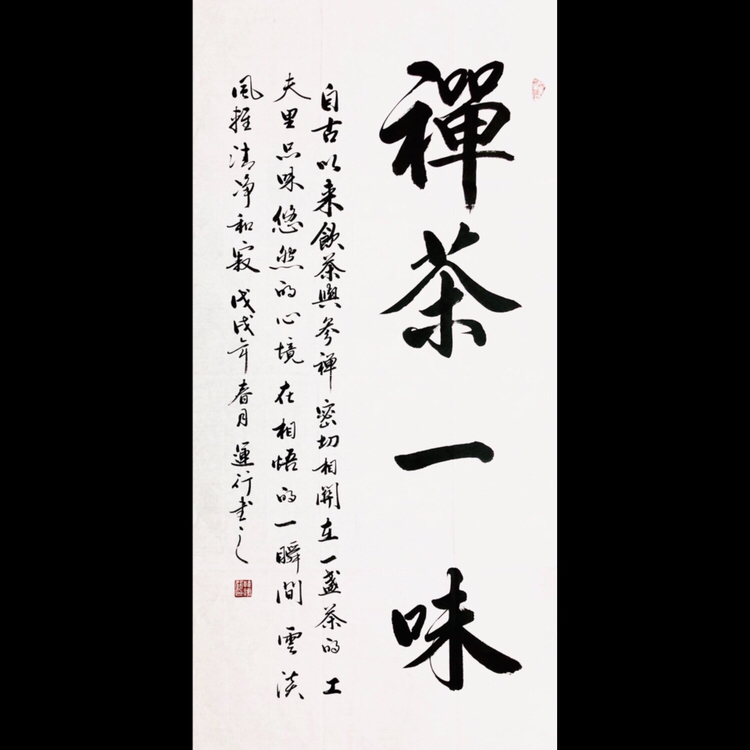 禪茶一味
自古以来飲茶與參禅密切相關在一盏茶的工
夫里品味悠然的心境在相悟的一瞬間雲淡
風輕清净和寂戊戌年春月運行書之